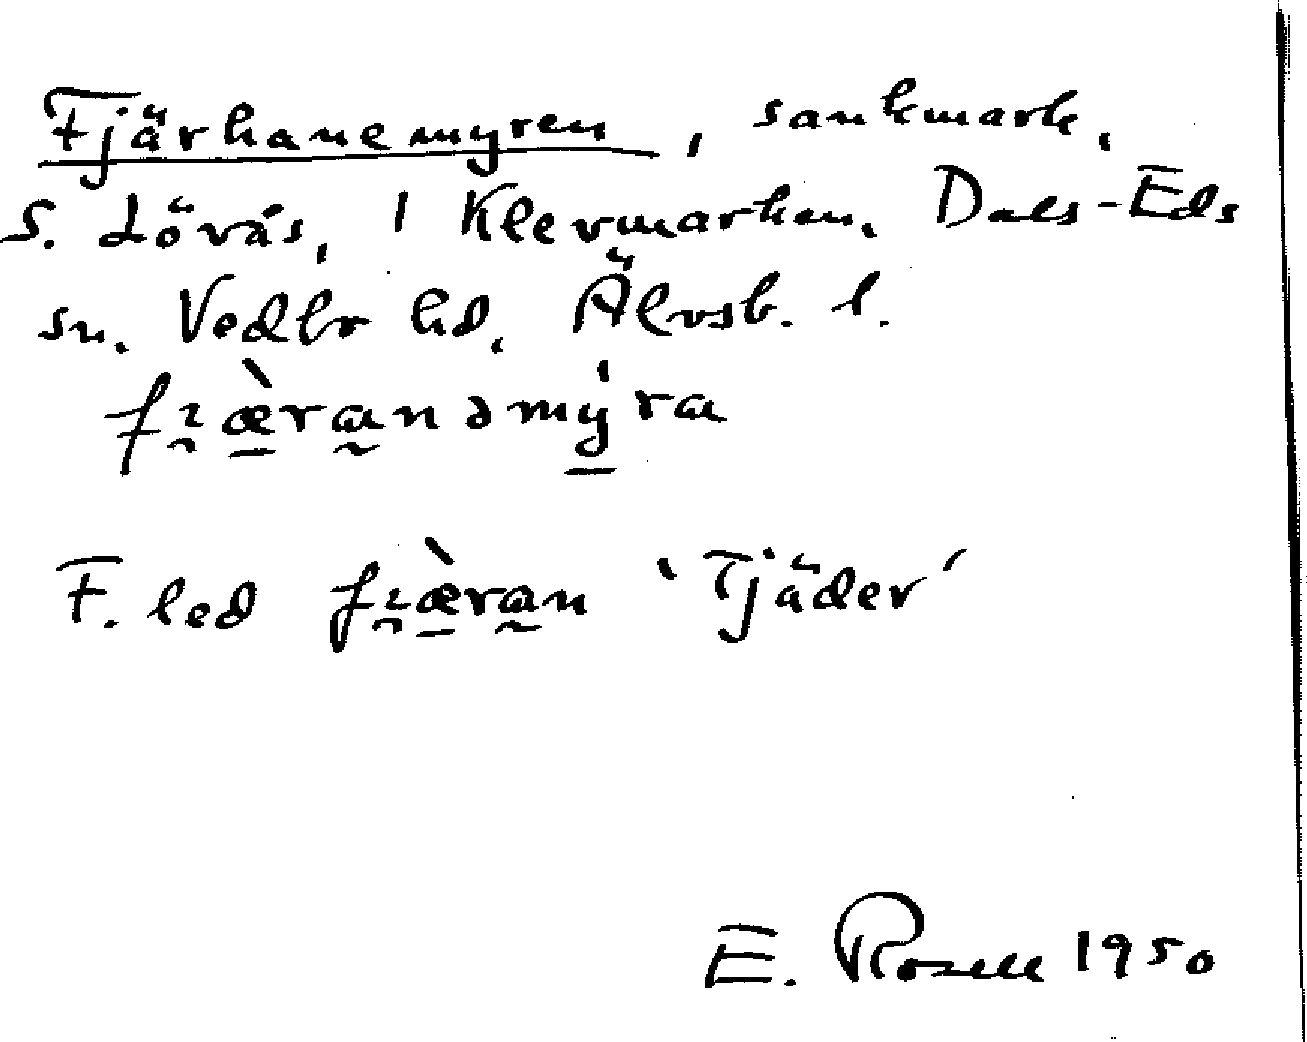 Fjärhanemyren, sankmark,
S. Lövås, 1 Klevmarken, Dals-Eds
sn. Vedbo hd, Älvsb. l.
fjæ̀ranəmy̍ra
F. led fjæ̀ran 'Tjäder'
E. Rosell 1950